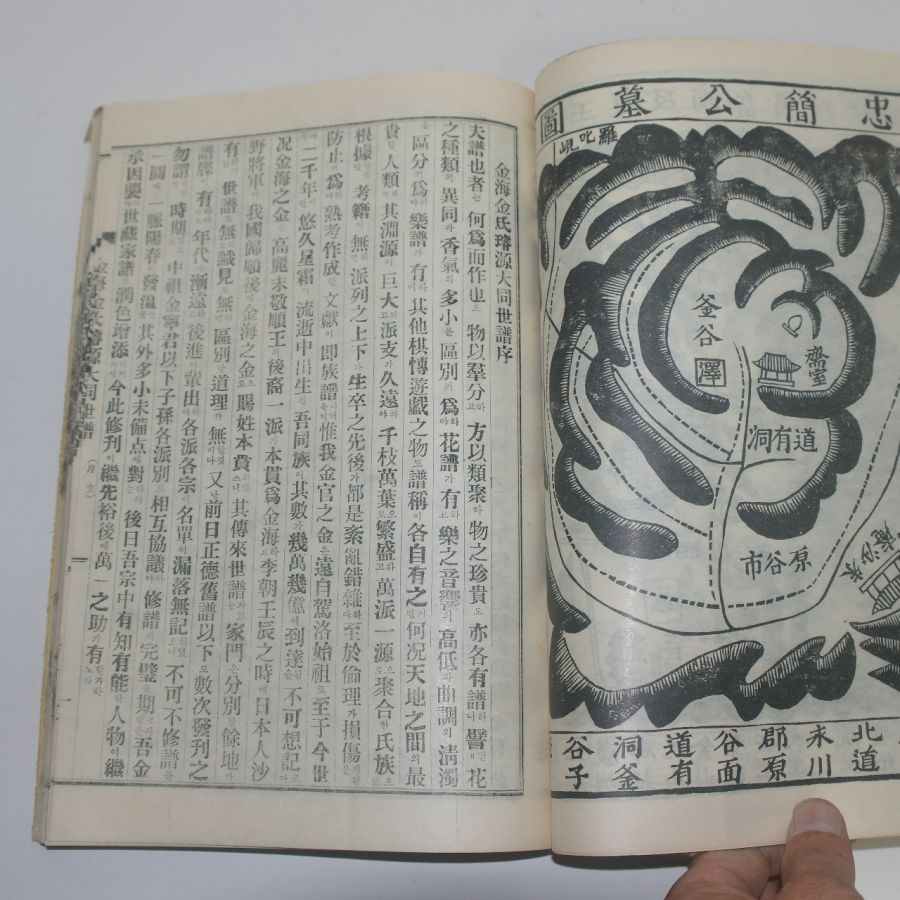 忠簡公墓圖
羅叱峴
釜谷
澤
齋室
道有洞
原谷市
北道
永川
郡原
谷面
道有
洞釜
谷子
金海金氏璿源大同世譜序
夫譜也者는 何爲而作也오 物以羣分하고 方以類聚라 物之珍貴도 亦各有譜니 譬컨대 花
之種類의 異同과 香氣의 多小를 區別키 爲하야 花譜가 有하고 樂之音響의 高低와 曲調의 淸濁
을 區分키 爲하야 樂譜가 有하며 其他棋博遊戱之物도 譜稱이 各自有之어던 何況天地之間의 最
貴한 人類의 其淵源이 巨大하고 派支가 久遠하야 千枝萬葉으로 繁盛하고 萬派一源으로 聚合한 氏族으로
根據할 考籍이 無하면 派列之上下와 生卒之先後가 都是紊亂錯雜하야 至於倫理가 損傷을
防止키 爲하야 熟考作成한 文獻이 即族譜이며 惟我金官之金은 遠自駕洛始祖로 至于今世
히 二千年의 悠久星霜이 流逝中出生된 吾同族의 其數가 幾萬幾億에 到達을 不可想記로다
况金海之金은 高麗末敬順王의 後裔一派가 本貫爲金海하고 李朝壬辰之時에 日本人沙
野將軍이 我國歸順後에 金海之金으로 賜姓本貴하니 其傳來世譜는 家門으로 分別할 餘地가
有하나 世譜도 無하고 識見도 無한 區別할 道理가 無할것이다 又는 前日正德舊譜以下로 數次發刊之
譜牒이 有하나 年代가 漸遠하고 後進이 輩出하야 各派各宗의 名單이 漏落無記하니 不可不修譜할
勿論할 時期라 中祖金寧君以下子孫各派別로 相互協議하야 修譜에 完璧을 期하고 吾金
圓에 一脈陽春이 發溫을 其外多小未備点에 對하야는 後日吾宗中有知有能한 人物이 繼
承因襲하야 世藏家譜에 潤色增添 今此修刊이 繼先裕後에 萬一之助가 有할가하노라
金海金氏璿源大同世譜
(序文)
一